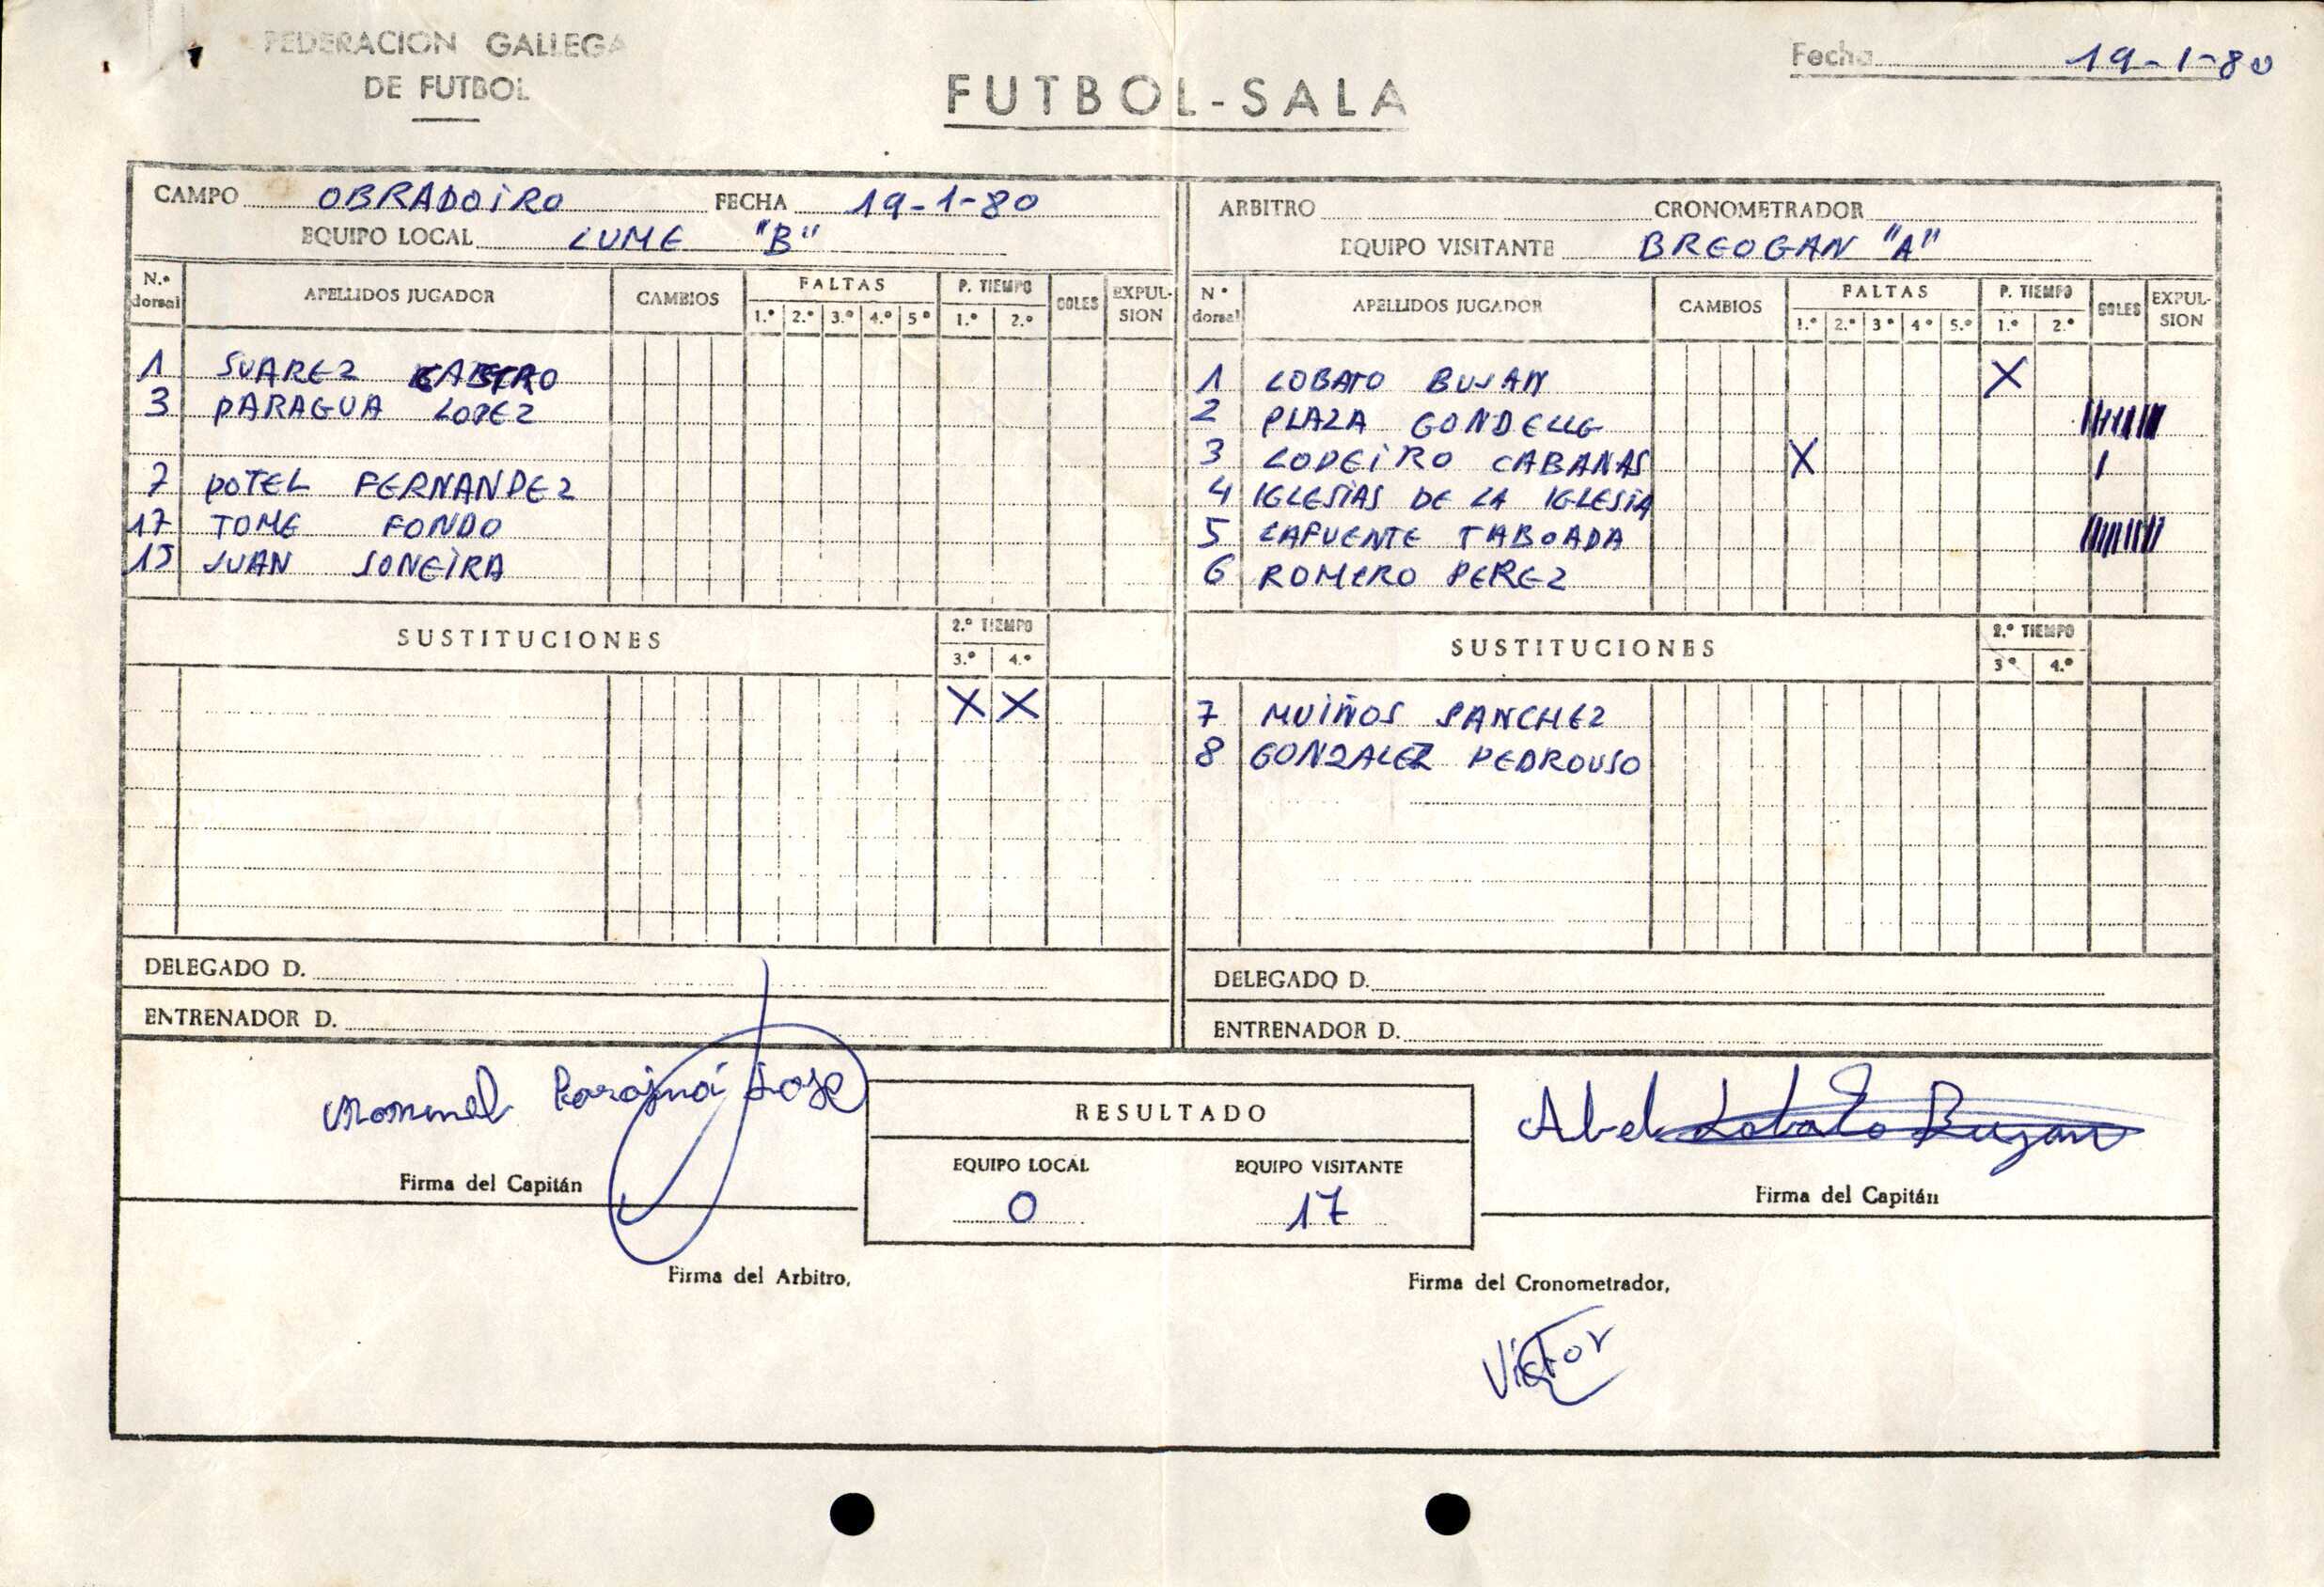 FEDERACION GALLEGA
DE FUTBOL
FUTBOL-SALA
Fecha 19-1-80
CAMPO OBRADOIRO FECHA 19-1-80
EQUIPO LOCAL LUME "B"
ARBITRO CRONOMETRADOR
EQUIPO VISITANTE BREOGAN "A"
N.º dorsal APELLIDOS JUGADOR CAMBIOS FALTAS 1.º 2.º 3.º 4.º 5º P. TIEMPO 1.º 2.º GOLES EXPUL-SION
1 SUAREZ CASTRO
3 PARAGUA LOPEZ
7 POTEL FERNANDEZ
17 TOME FONDO
15 JUAN SONEIRA
SUSTITUCIONES 2.º TIEMPO 3.º 4.º
X X
DELEGADO D.
ENTRENADOR D.
Nº dorsal APELLIDOS JUGADOR CAMBIOS FALTAS 1.º 2.º 3º 4º 5.º P. TIEMPO 1.º 2.º GOLES EXPUL-SION
1 LOBATO BUJAN X
2 PLAZA GONDELLE
3 LODEIRO CABANAS X I
4 IGLESIAS DE LA IGLESIA
5 LAFUENTE TABOADA
6 ROMERO PEREZ
SUSTITUCIONES 2.º TIEMPO 3º 4.º
7 MUIÑOS SANCHEZ
8 GONZALEZ PEDROUSO
DELEGADO D.
ENTRENADOR D.
Firma del Capitán
RESULTADO
EQUIPO LOCAL EQUIPO VISITANTE
0 17
Abel Lobato Bujan
Firma del Capitán
Firma del Arbitro,
Firma del Cronometrador,
Victor